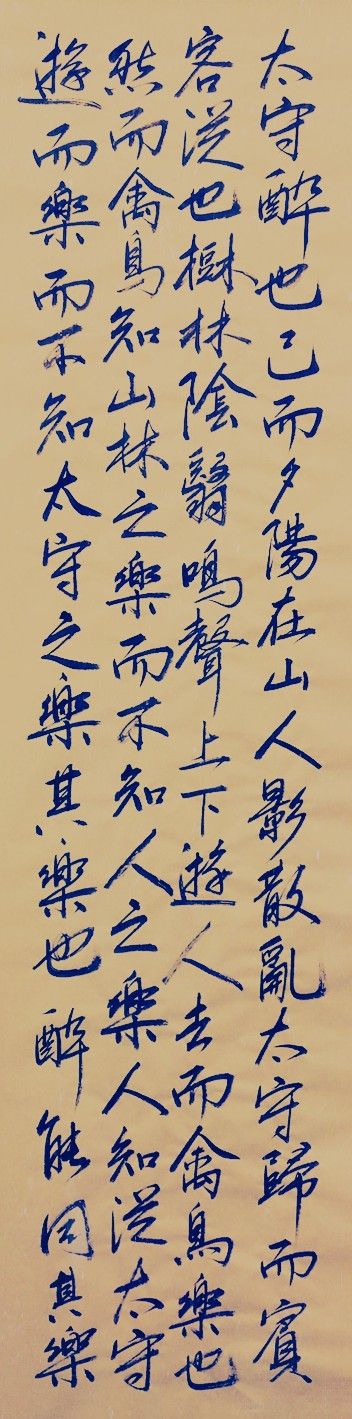 太守醉也已而夕陽在山人影散亂太守歸而賓
客從也樹林陰翳鳴聲上下遊人去而禽鳥樂也
然而禽鳥知山林之樂而不知人之樂人知從太守
遊而樂而不知太守之樂其樂也醉能同其樂